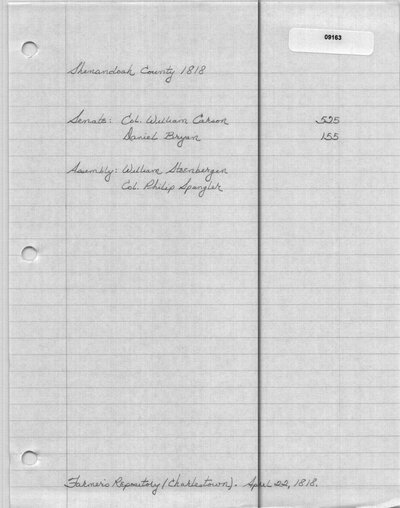 09163
Shenandoah County 1818
Senate: Col. William Carson 525
Daniel Bryan 155
Assembly: William Steenbergen
Col. Philip Spangler
Farmer's Repository (Charlestown). April 22, 1818.